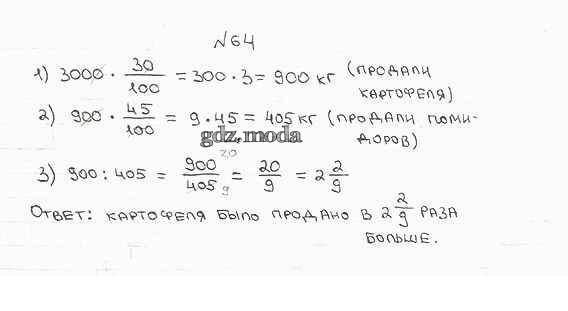 №64
1) 3000 · 30/100 = 300 · 3 = 900 кг (ПРОДАЛИ
КАРТОФЕЛЯ)
2) 900 · 45/100 = 9 · 45 = 405 кг (ПРОДАЛИ ПОМИ-
ДОРОВ)
gdz.moda
3) 900 : 405 = 900/405 20/9 = 20/9 = 2 2/9
ОТВЕТ: КАРТОФЕЛЯ БЫЛО ПРОДАНО В 2 2/9 РАЗА
БОЛЬШЕ.